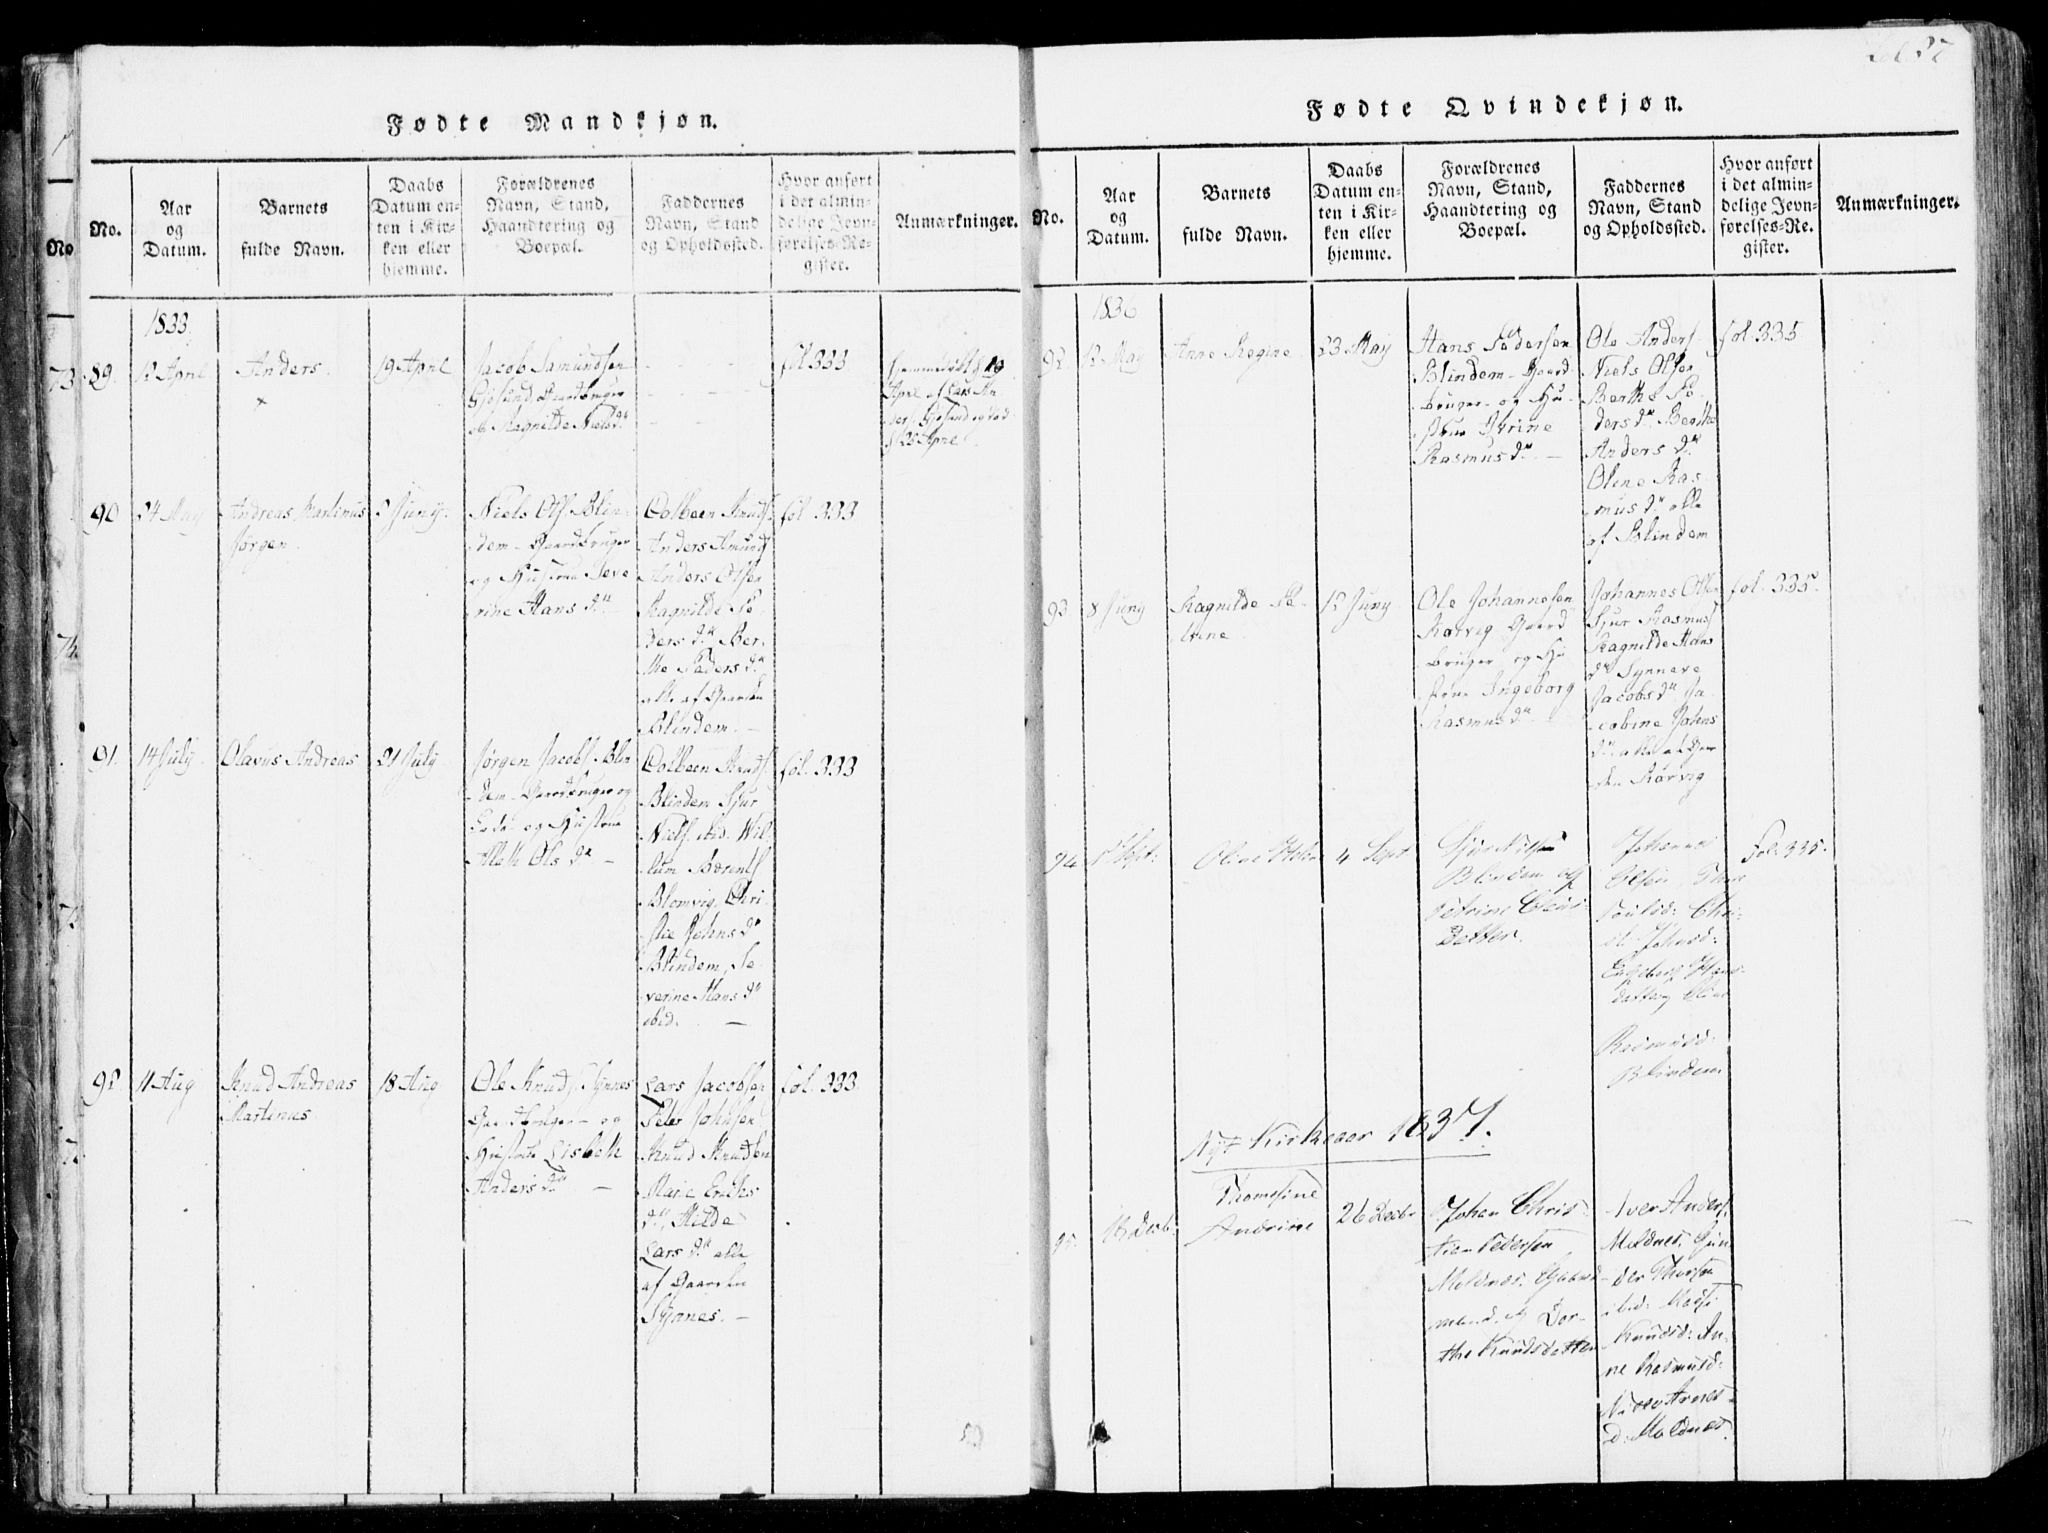 Fødte Mandkjøn.
No.
Aar
og
Datum.
Barnets
fulde Navn.
Daabs
Datum en-
ten i Kir-
ken eller
hjemme.
Forældrenes
Navn, Stand,
Haandtering og
Boepæl.
Faddernes
Navn, Stand
og Opholdssted.
Hvor anført
i det almin-
delige Jevn-
førelses-Re-
gister.
Anmærkninger.
1833.
89.
12 April
Anders.
19 April
Jacob Samundsen
Gjøsund Gaardbruger
og Ragnilde Niels dr
fol 333
April af Lars An
90
24 May
Andreas Martinus
Jørgen
2 Juny.
Niels Ols. Blin-
dem - Gaardbruger
og Hustrue Seve
rine Hans dr
Colbeen Knuds.
Anders Amunds
Anders Olsen
Ragnilde Pe-
ders dr Ber-
the Peders dr
alle af Gaarden
Blindem. -
fol. 333
91.
14 July
Olavus Andreas
21 July
Jørgen Jacobs. Blin
dem - Gaardbruger og
og Hustrue
Ols dr -
Colbeen Knuds.
Blindem Sjur
Niels. ibid. Wil-
lum Bærents
Blomvig. Chri-
stie Johns dr
Blindem, Se-
verine Hans dr
ibid. -
fol. 333
92.
11 Aug
Knud Andreas
Martinus
18 Aug
Ole Knuds. Synnes
Gaardbruger - og
Hustrue Lisbeth
Anders dr -
Lars Jacobsen
Peter Johnsen
Knud Knudsen
Marie Ericks
dr, Hilde
Lars dr alle
af Gaarden
Synnes. -
fol. 333.
Fødte Qvindekjøn.
No.
Aar
og
Datum.
Barnets
fulde Navn.
Daabs
Datum en-
ten i Kir-
ken eller
hjemme.
Forældrenes
Navn, Stand,
Haandtering og
Boepæl.
Faddernes
Navn, Stand
og Opholdssted.
Hvor anført
i det almin-
delige Jevn-
førelses-Re-
gister.
Anmærkninger.
1836
92.
12 May
Anne Regine
23 May
Hans Pedersen
Blindem - Gaard
bruger og Hu-
strue
Rasmus dr -
Ole Anders.
Niels Olsen
Berthe Pe-
ders dr, Berthe
Anders dr
Olene Ras-
mus dr alle
af Blindem
fol. 335
93
8 Juny
Ragnilde Pe-
trine
12 Juny
Ole Johannesen
Rørvig Gaard
bruger og Hu
strue Ingeborg
Rasmus dr
Johannes Olsen
Sjur Rasmus
Ragnilde Hans
dr Synneve
Jacobs dr Ja-
cobine Johns
dr alle af Gaar
den Rørvig
fol. 335.
94
1 Sept:
4 Sept
Sjur Nilsen
Blindem og
Petrine
Datter.
Johannes
Olsen,
Chri-
Johnsd:
Ingeborg Hans-
datter,
Rasmusd:
Blindem
Fol. 335.
Nyt Kirkeaar 1837.
95.
Thomesine
Andrine
26 Decbr
Johan Chris-
tian Pedersen
Moldnes. Gaard
mand og Dor-
the Knudsdatter
Iver Anders.
Moldnes. Gun-
der Thorsen
ibid:
Knudsd: An-
ne Rasmusd:
Arnes
d: Moldnes.